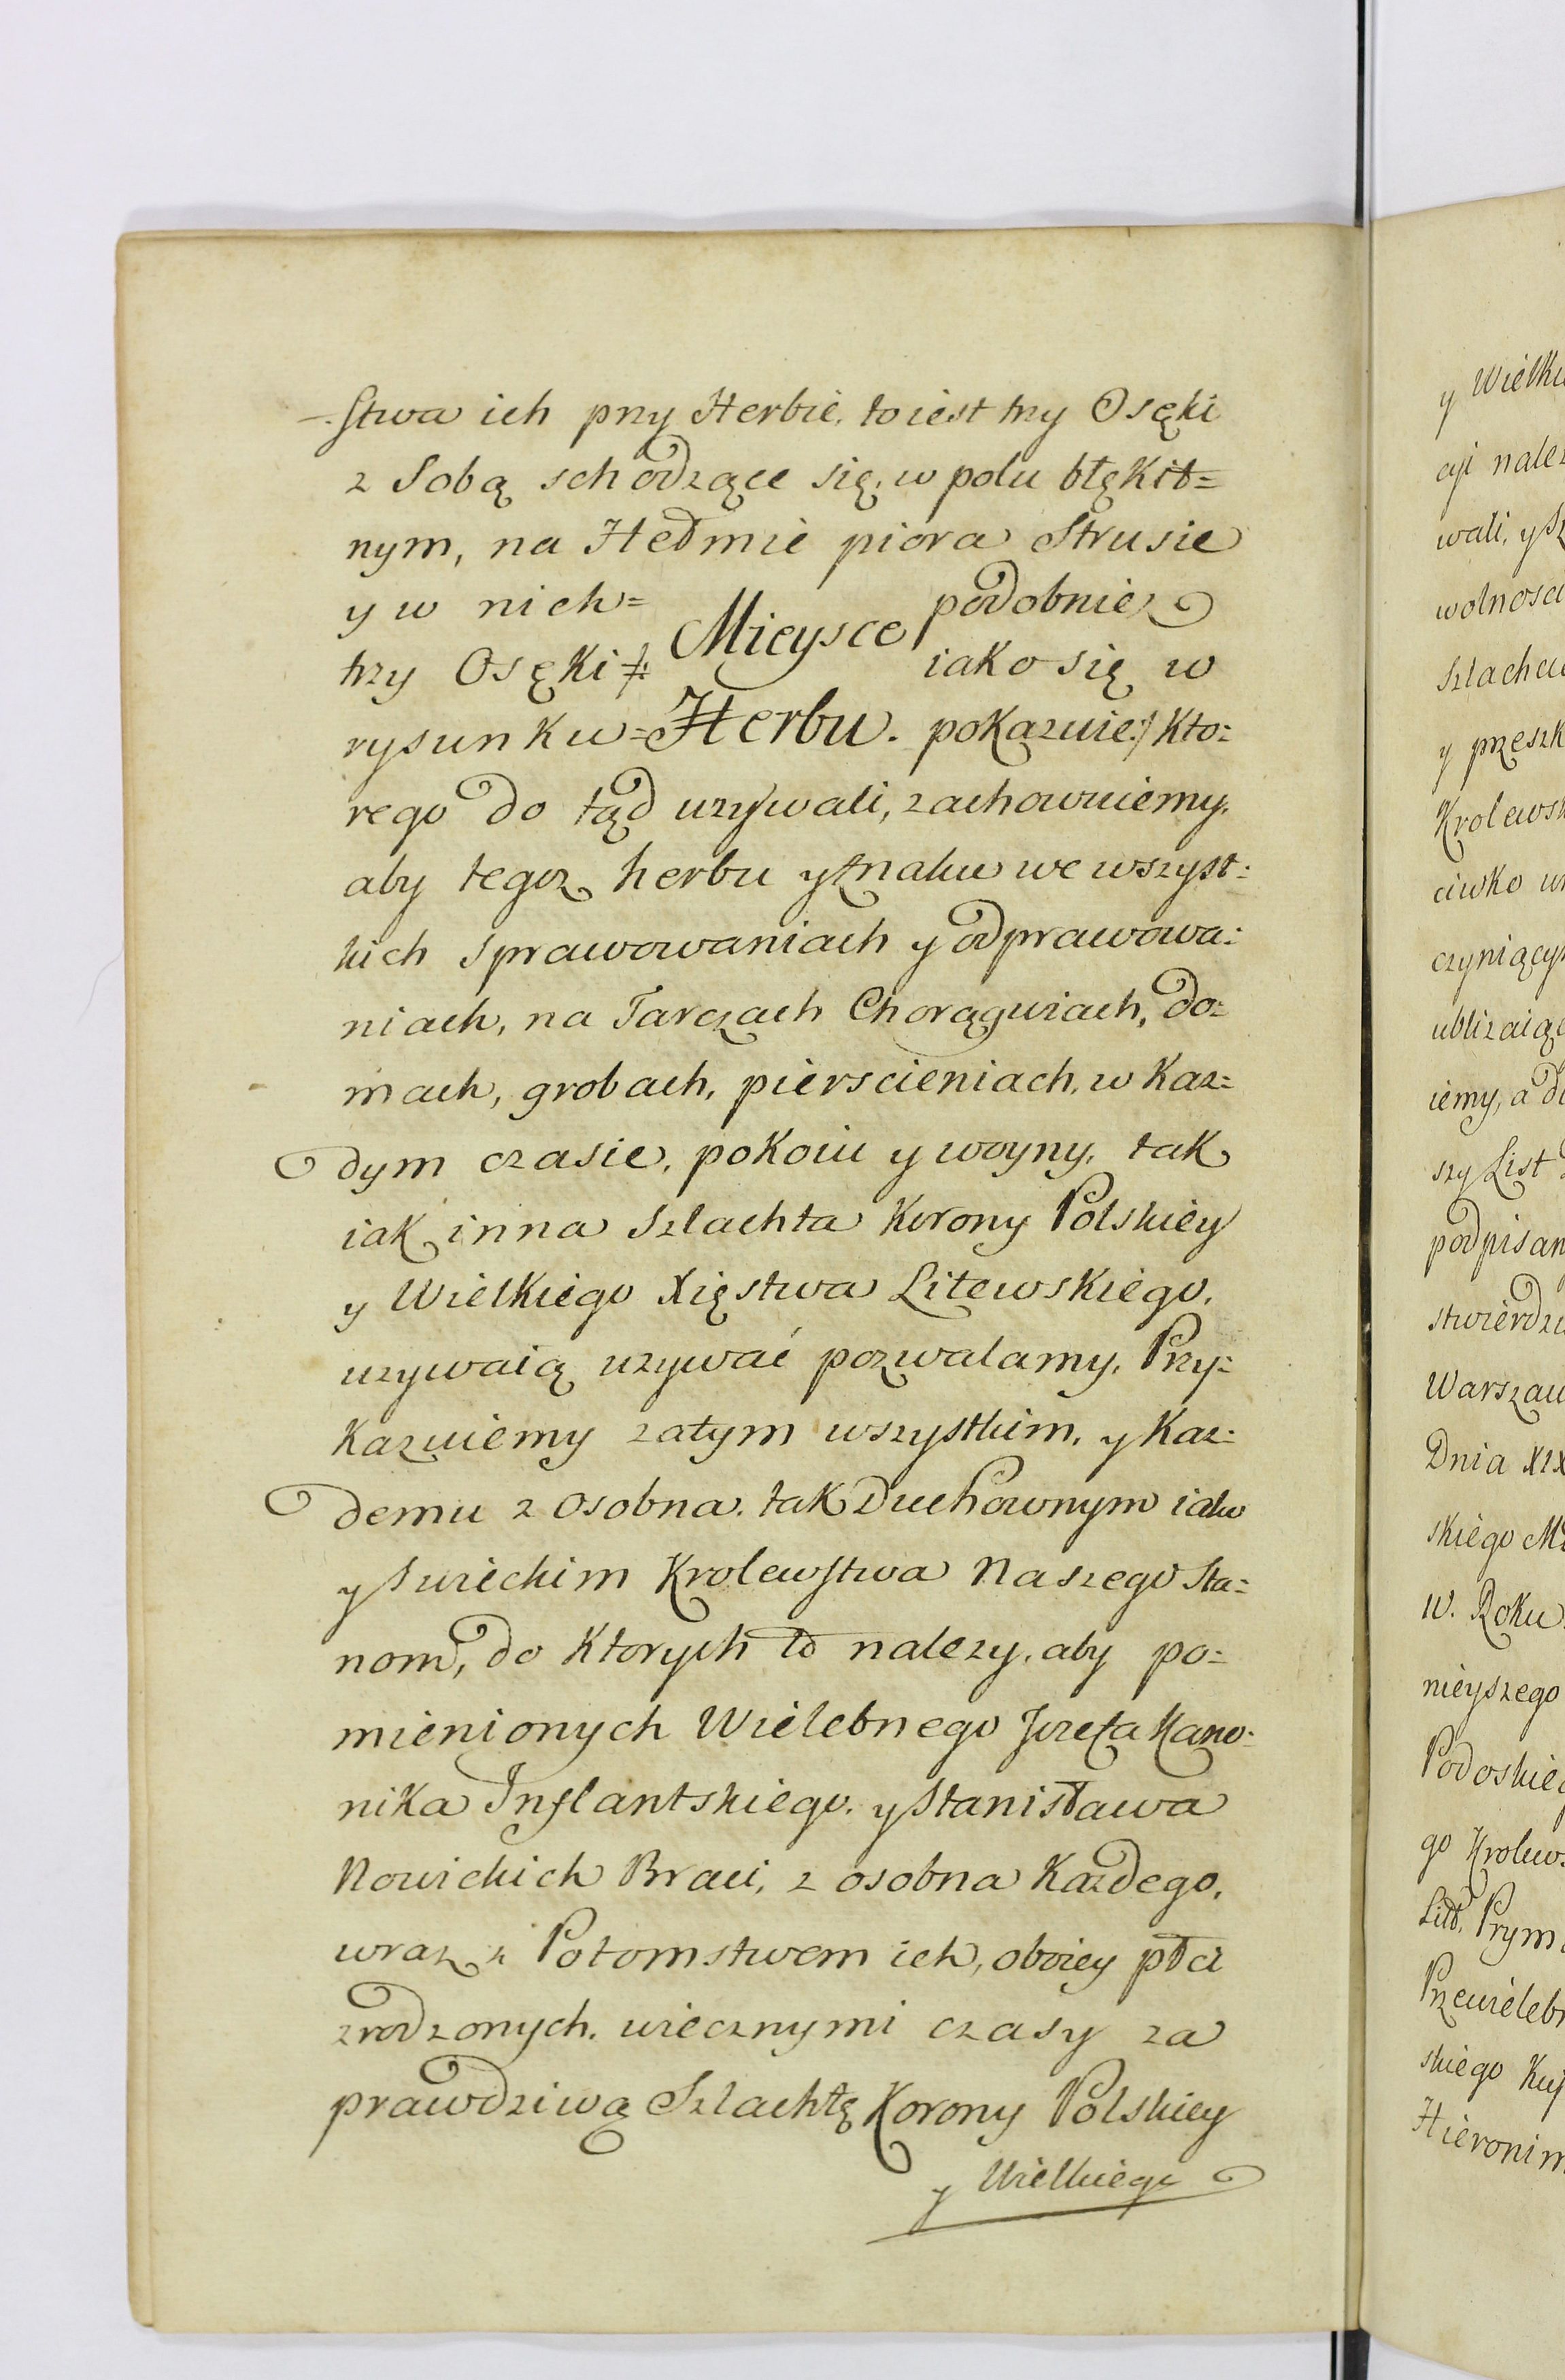 -stwa ich przy Herbie, to iest trzy Osęki
z Sobą schodzące się, w polu błękit=
nym, na Hełmie piora Strusie
y w nich= podobnież
Mieysce
trzy Osęki /: iako się w
rysunku= Herbu. pokazuie :/ Kto=
rego do tąd uzywali, zachowuiemy,
aby tegoz herbu y znaku we wszyst=
kich sprawowaniach y odprawowa=
niach, na Tarczach Chorągwiach, do=
mach, grobach, pierscieniach, w Kaz=
dym czasie, pokoiu y woyny, tak
iak inna Szlachta Korony Polskiey
y Wielkiego Xięstwa Litewskiego,
uzywaią uzywać pozwalamy, Przy=
Kazuiemy zatym wszystkim, y Kaz=
demu z osobna, tak Duchownym iako
y Swieckim Krolewstwa Naszego Sta=
nom, do Ktorych to nalezy, aby po=
mienionych Wielebnego Jozefa Kano=
nika Inflantskiego, y Stanisława
Nowickich Braci, z osobna Kazdego,
wraz z Potomstwem ich, oboiey płci
zrodzonych, wiecznymi czasy za
prawdziwą Szlachtę Korony Polskiey
y Wielkiego
y Wielki
cyi nalez
wali, y Sz
wolnosci
Szlachec
y przeszk
Krolewsk
ciwko
czyniący
ublizaiąc
iemy, a
szy List
podpisan
stwierdzi
Warszaw
Dnia XIX
skiego
w. Roku
nieyszego
Podoskieg
go Krolew
Litt. Prym
Przewieleb
skiego Kuj
Hieronim